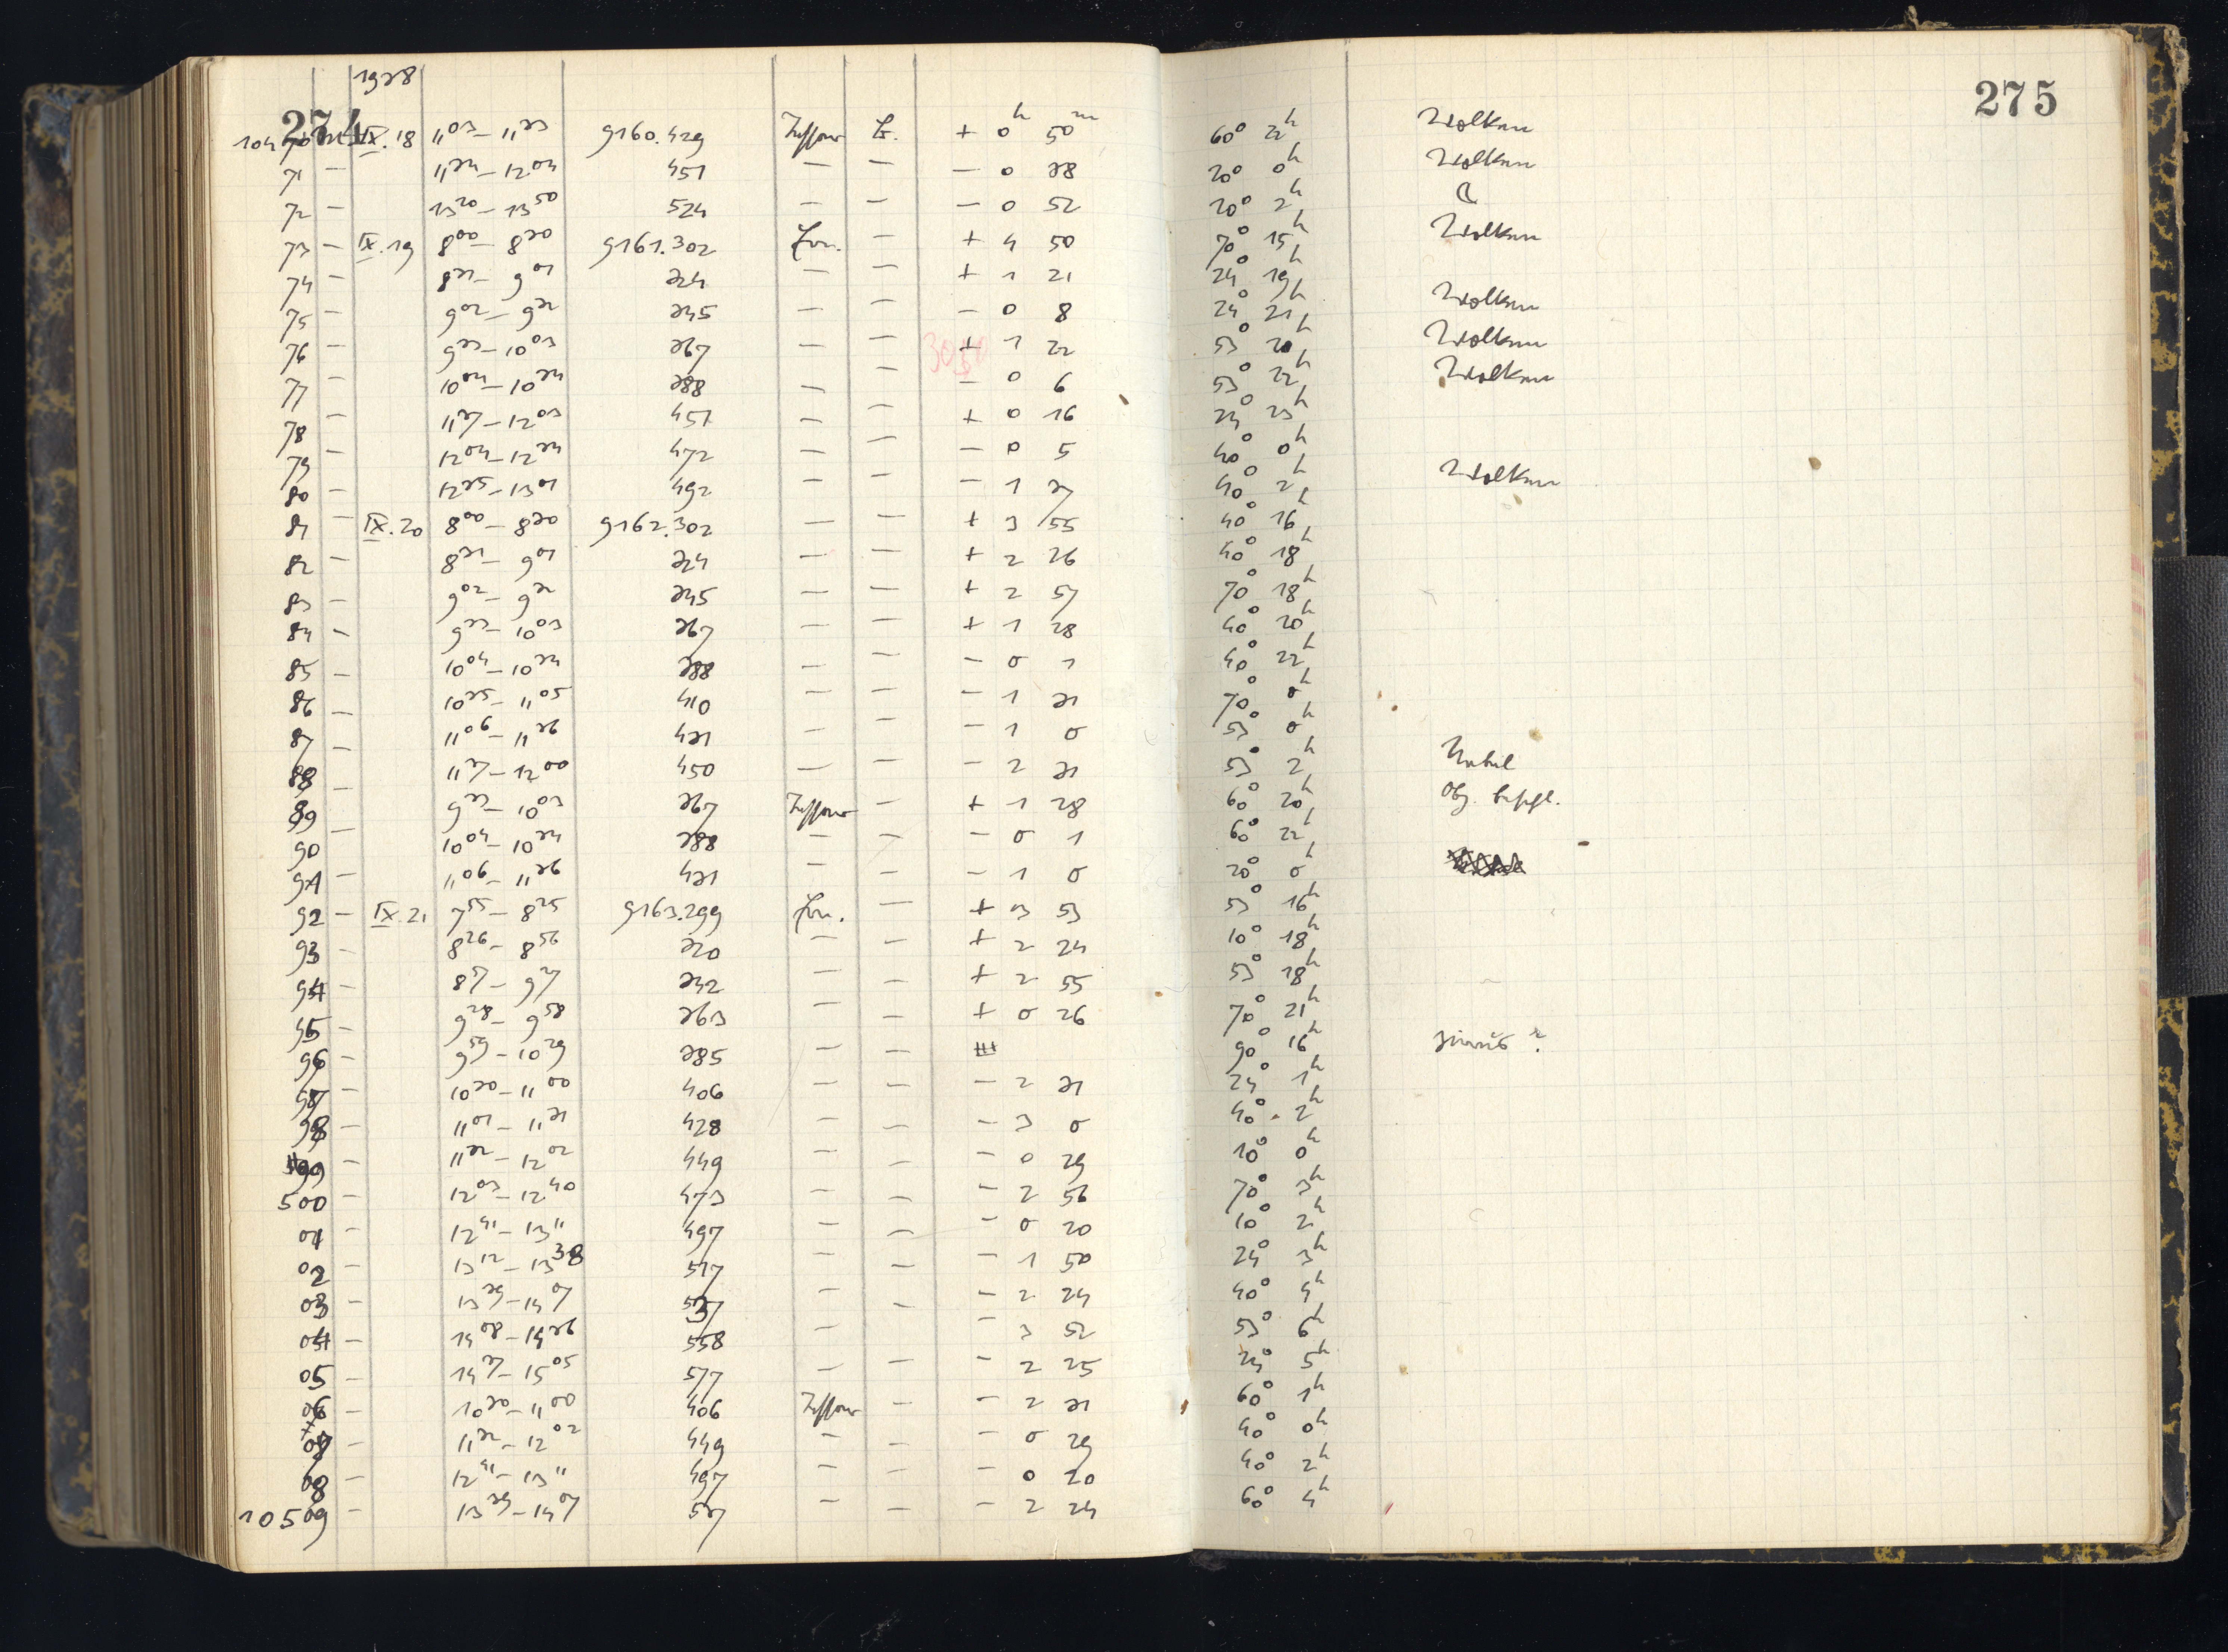 1928
274 275
10470 IX.18 11⁰³ – 11³³ 9160.429 Zeissar E. + 0ʰ 50ᵐ 60° 22ʰ Wolken
71 – 11³⁴ – 12⁰⁴ 451 — — – 0 38 20° 0ʰ Wolken
72 – 13²⁰ – 13⁵⁰ 524 — — – 0 52 20° 2ʰ ☾
73 – IX.19 8⁰⁰ – 8³⁰ 9161.302 — + 4 50 70° 15ʰ Wolken
74 – 8³¹ – 9⁰¹ 324 — — + 1 21 24° 19ʰ
75 – 9⁰² – 9³² 345 — — – 0 8 24° 21ʰ Wolken
76 – 9³³ – 10⁰³ 367 — — + 1 22 53° 20ʰ Wolken
77 – 10⁰⁴ – 10³⁴ 388 — — – 0 6 53° 22ʰ Wolken
78 – 11³⁷ – 12⁰³ 451 — — + 0 16 24° 23ʰ
79 – 12⁰⁴ – 12³⁴ 472 — — – 0 5 40° 0ʰ
80 – 12³⁵ – 13⁰¹ 492 — — – 1 37 40° 2ʰ Wolken
81 – IX.20 8⁰⁰ – 8³⁰ 9162.302 — — + 3 55 40° 16ʰ
82 – 8³¹ – 9⁰¹ 324 — — + 2 26 40° 18ʰ
83 – 9⁰² – 9³² 345 — — + 2 57 70° 18ʰ
84 – 9³³ – 10⁰³ 367 — — + 1 28 40° 20ʰ
85 – 10⁰⁴ – 10³⁴ 388 — — – 0 1 40° 22ʰ
86 – 10³⁵ – 11⁰⁵ 410 — — – 1 31 70° 0ʰ
87 – 11⁰⁶ – 11³⁶ 431 — — – 1 0 53° 0ʰ
88 – 11³⁷ – 12⁰⁰ 450 — — – 2 31 53° 2ʰ Nebel
89 – 9³³ – 10⁰³ 367 — + 1 28 60° 20ʰ Obj. beschl.
90 – 10⁰⁴ – 10³⁴ 388 — — – 0 1 60° 22ʰ
91 – 11⁰⁶ – 11³⁶ 431 — — – 1 0 20° 0ʰ
92 – IX.21 7⁵⁵ – 8²⁵ 9163.299 — + 3 53 53° 16ʰ
93 – 8²⁶ – 8⁵⁶ 320 — — + 2 24 10° 18ʰ
94 – 8⁵⁷ – 9²⁷ 342 — — + 2 55 53° 18ʰ
95 – 9²⁸ – 9⁵⁸ 363 — — + 0 26 70° 21ʰ
96 – 9⁵⁹ – 10²⁹ 385 — — 90° 16ʰ
97 – 10³⁰ – 11⁰⁰ 406 — — – 2 31 24° 1ʰ
98 – 11⁰¹ – 11³¹ 428 — — – 3 0 40° 2ʰ
99 – 11³² – 12⁰² 449 — — – 0 29 10° 0ʰ
500 – 12⁰³ – 12⁴⁰ 473 — — – 2 56 70° 3ʰ
01 – 12⁴¹ – 13¹¹ 497 — — – 0 20 10° 2ʰ
02 – 13¹² – 13³⁸ 517 — — – 1 50 24° 3ʰ
03 – 13³⁹ – 14⁰⁷ 537 — — – 2 24 40° 4ʰ
04 – 14⁰⁸ – 14³⁶ 558 — — – 3 52 53° 6ʰ
05 – 14³⁷ – 15⁰⁵ 577 — — – 2 25 24° 5ʰ
06 – 10³⁰ – 11⁰⁰ 406 — – 2 31 60° 1ʰ
07 – 11³² – 12⁰² 449 — — – 0 29 40° 0ʰ
08 – 12⁴¹ – 13¹¹ 497 — — – 0 20 40° 2ʰ
10509 – 13³⁹ – 14⁰⁷ 537 — — – 2 24 60° 4ʰ